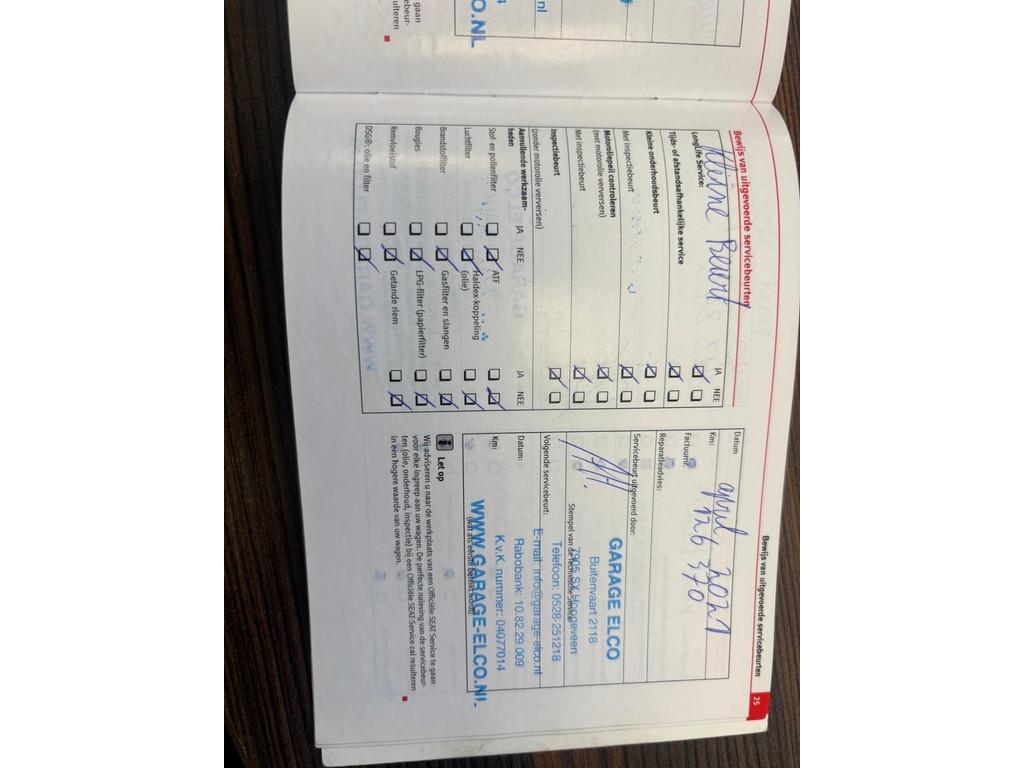 O.NL
.nl
gaan
ebeur-
ulteren
Bewijs van uitgevoerde servicebeurten
25
Bewijs van uitgevoerde servicebeurten
Kleine Beurt
JA NEE
LongLife Service:
Tijds- of afstandsafhankelijke service
Kleine onderhoudsbeurt
Met inspectiebeurt
Motoroliepeil controleren
(met motorolie verversen)
Met inspectiebeurt
Inspectiebeurt
(zonder motorolie verversen)
Aanvullende werkzaam-
heden
JA NEE
JA NEE
Stof- en pollenfilter
ATF
Luchtfilter
Haldex-koppeling
(olie)
Brandstoffilter
Gasfilter en slangen
Bougies
LPG-filter (papierfilter)
Remvloeistof
Getande riem
DSG®: olie en filter
Datum
april 2021
Km:
126 370
Factuurnr.
Reparatieadvies:
Servicebeurt uitgevoerd door:
GARAGE ELCO
Buitenvaart 2118
7905 SX Hoogeveen
Stempel van de Technische Service
Telefoon: 0528-251218
Volgende servicebeurt:
E-mail: info@garage-elco.nl
Datum:
Rabobank: 10.82.29.009
Km:
K.v.K. nummer: 04077014
(wat als eerste bereikt wordt)
WWW.GARAGE-ELCO.NL
Let op
Wij adviseren u naar de werkplaats van een Officiële SEAT Service te gaan
voor elke ingreep aan uw wagen. De perfecte naleving van de servicebeur-
ten (olie, onderhoud, inspectie) bij een Officiële SEAT-Service zal resulteren
in een hogere waarde van uw wagen.